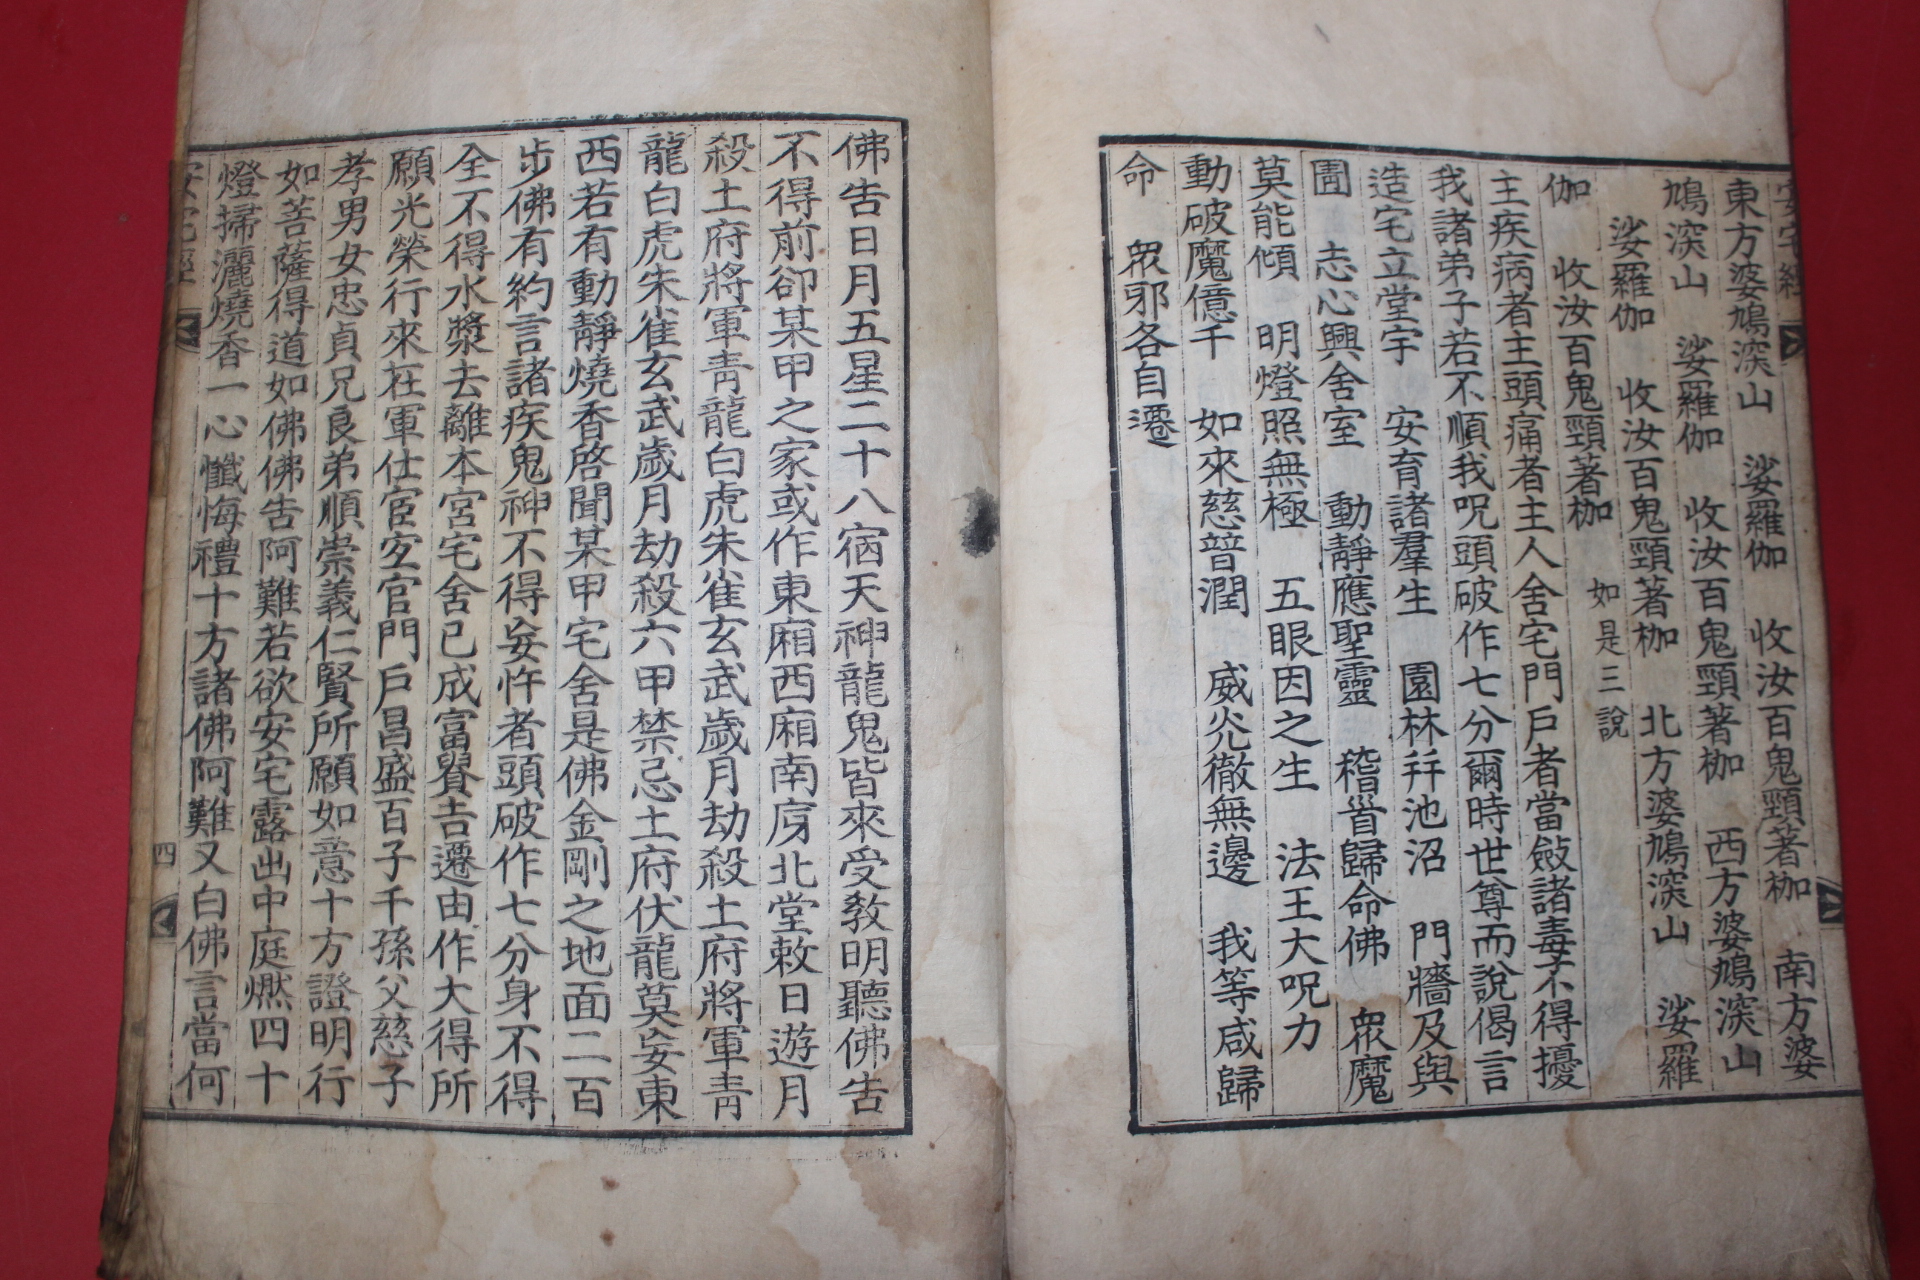 安宅經
東方婆鳩深山　娑羅伽　收汝百鬼頸著枷　南方婆
鳩深山　娑羅伽　收汝百鬼頸著枷　西方婆鳩深山
娑羅伽　收汝百鬼頸著枷　北方婆鳩深山　娑羅
伽　收汝百鬼頸著枷　如是三說
主疾病者主頭痛者主人舍宅門戶者當斂諸毒不得擾
我諸弟子若不順我呪頭破作七分爾時世尊而說偈言
造宅立堂宇　安育諸羣生　園林幷池沼　門牆及與
圊　志心興舍室　動靜應聖靈　稽首歸命佛　眾魔
莫能傾　明燈照無極　五眼因之生　法王大呪力
動破魔億千　如來慈普潤　威光徹無邊　我等咸歸
命　眾邪各自遷
佛告日月五星二十八宿天神龍鬼皆來受敎明聽佛告
不得前卻某甲之家或作東廂西廂南房北堂敕日遊月
殺土府將軍青龍白虎朱雀玄武歲月劫殺土府將軍青
龍白虎朱雀玄武歲月劫殺六甲禁忌土府伏龍莫妄東
西若有動靜燒香啓聞某甲宅舍是佛金剛之地面二百
步佛有約言諸疾鬼神不得妄忤者頭破作七分身不得
全不得水漿去離本宮宅舍已成富貴吉遷由作大得所
願光榮行來在軍仕宦安官門戶昌盛百子千孫父慈子
孝男女忠貞兄良弟順崇義仁賢所願如意十方證明行
如菩薩得道如佛佛告阿難若欲安宅露出中庭燃四十
燈掃灑燒香一心懺悔禮十方諸佛阿難又白佛言當何
安宅經　四